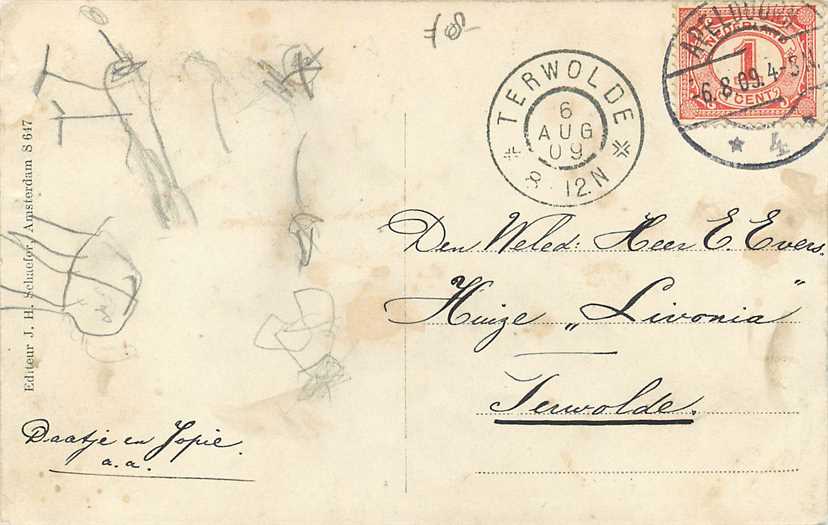 78
TERWOLDE
6
AUG
09
8-12.N
APELDOORN
-6.8.09.4-5
NEDERLAND
1
CENT
4
Den Weled: Heer E. Evers.
Huize „Livonia"
Terwolde.
Daatje en Jopie.
a.a.
Editeur J. H. Schaefer, Amsterdam S 647